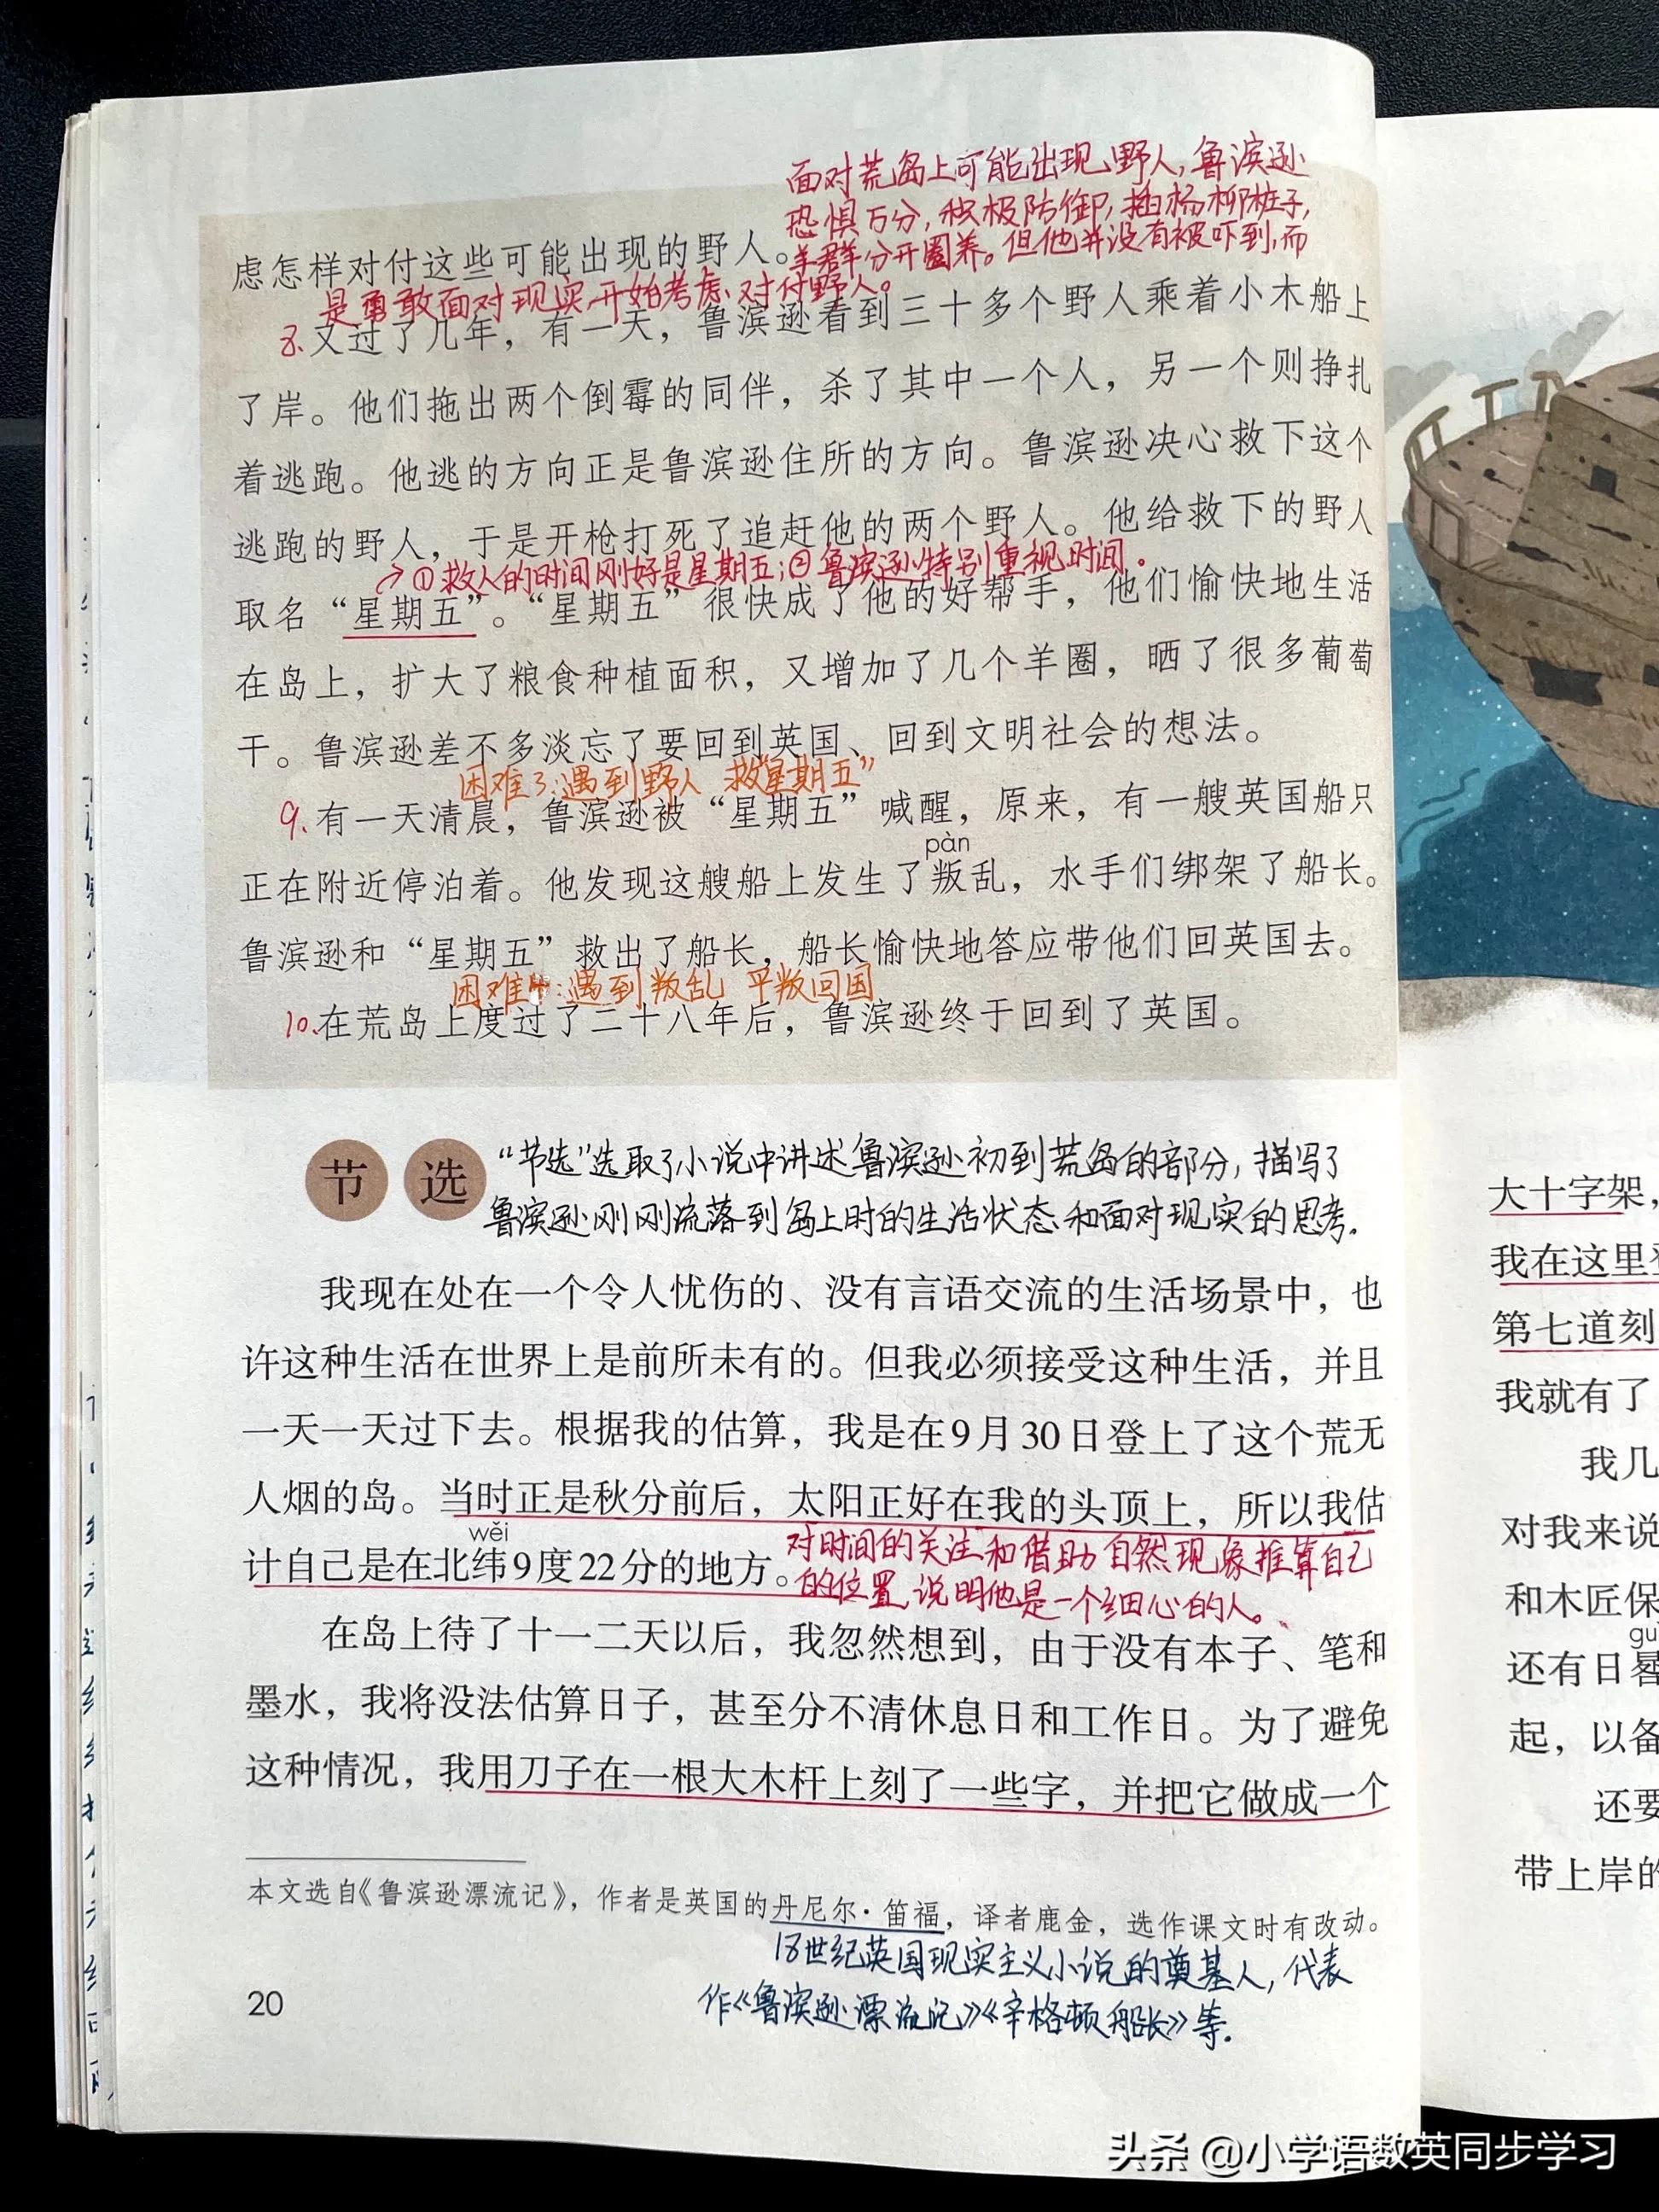 面对荒岛上可能出现野人,鲁滨逊
恐惧万分,积极防御,插杨柳桩子,
虑怎样对付这些可能出现的野人。羊群分开圈养。但他并没有被吓到,而
是勇敢面对现实,开始考虑对付野人。
8.又过了几年，有一天，鲁滨逊看到三十多个野人乘着小木船上
了岸。他们拖出两个倒霉的同伴，杀了其中一个人，另一个则挣扎
着逃跑。他逃的方向正是鲁滨逊住所的方向。鲁滨逊决心救下这个
逃跑的野人，于是开枪打死了追赶他的两个野人。他给救下的野人
①救人的时间刚好是星期五;②鲁滨逊特别重视时间.
取名“星期五”。“星期五”很快成了他的好帮手，他们愉快地生活
在岛上，扩大了粮食种植面积，又增加了几个羊圈，晒了很多葡萄
干。鲁滨逊差不多淡忘了要回到英国、回到文明社会的想法。
困难3:遇到野人 救“星期五”
9.有一天清晨，鲁滨逊被“星期五”喊醒，原来，有一艘英国船只
pàn
正在附近停泊着。他发现这艘船上发生了叛乱，水手们绑架了船长。
鲁滨逊和“星期五”救出了船长，船长愉快地答应带他们回英国去。
困难4:遇到叛乱 平叛回国
10.在荒岛上度过了二十八年后，鲁滨逊终于回到了英国。
节选
“节选”选取了小说中讲述鲁滨逊初到荒岛的部分,描写了
鲁滨逊刚刚流落到岛上时的生活状态和面对现实的思考.
我现在处在一个令人忧伤的、没有言语交流的生活场景中，也
许这种生活在世界上是前所未有的。但我必须接受这种生活，并且
一天一天过下去。根据我的估算，我是在9月30日登上了这个荒无
人烟的岛。当时正是秋分前后，太阳正好在我的头顶上，所以我估
wěi
计自己是在北纬9度22分的地方。
对时间的关注和借助自然现象推算自己
的位置,说明他是一个细心的人。
在岛上待了十一二天以后，我忽然想到，由于没有本子、笔和
墨水，我将没法估算日子，甚至分不清休息日和工作日。为了避免
这种情况，我用刀子在一根大木杆上刻了一些字，并把它做成一个
本文选自《鲁滨逊漂流记》，作者是英国的丹尼尔·笛福，译者鹿金，选作课文时有改动。
18世纪英国现实主义小说的奠基人,代表
作《鲁滨逊漂流记》《辛格顿船长》等.
20
大十字架，
我在这里
第七道刻
我就有了
我几
对我来说
和木匠保
还有日晷
起，以备
还要
带上岸的
头条 @小学语数英同步学习